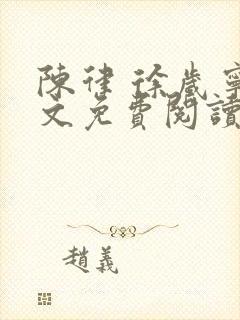 陳律 徐歲寧
文免費閱讀
趙義